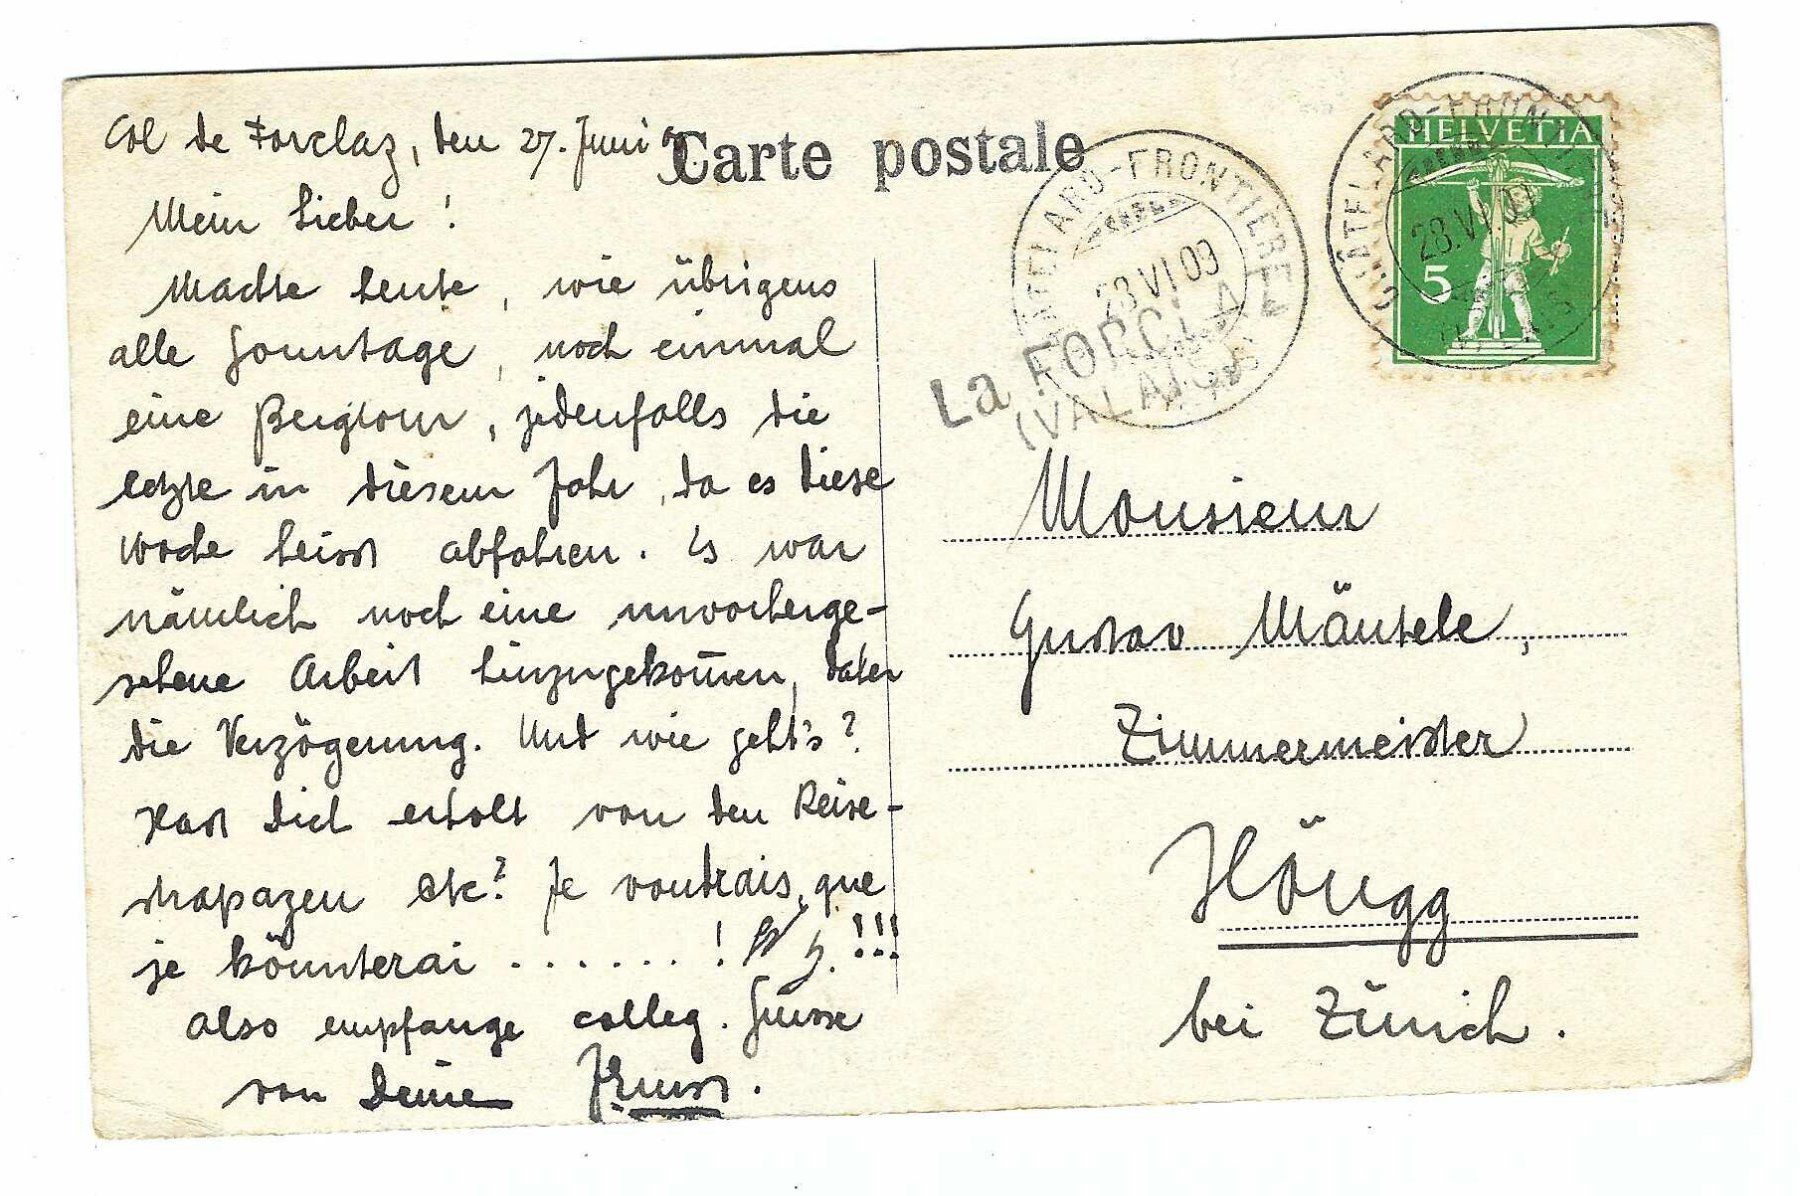 Col de Forclaz, den 27. Juni 09.
Carte postale
Mein Lieber !
Machte heute, wie übrigens
alle Sonntage, noch einmal
eine Bergtour, jedenfalls die
letzte in diesem Jahr, da es diese
Woche heisst abfahren. Es war
nämlich noch eine unvorherge-
sehene Arbeit hinzugekom̅en, daher
die Verzögerung. Und wie geht's?
Hast Dich erholt von den Reise-
strapazen etc? Je voudrais, que
je könnterai . . . . . . . ! !!!
Also empfange colleg. Grüsse
von Deine
HELVETIA
5
CHÂTELARD-FRONTIÈRE
28.VI.09
CHÂTELARD-FRONTIÈRE
28.VI.09
La FORCLAZ
(VALAIS)
Monsieur
Gustav Mäntele,
Zimmermeister
Höngg
bei Zürich.